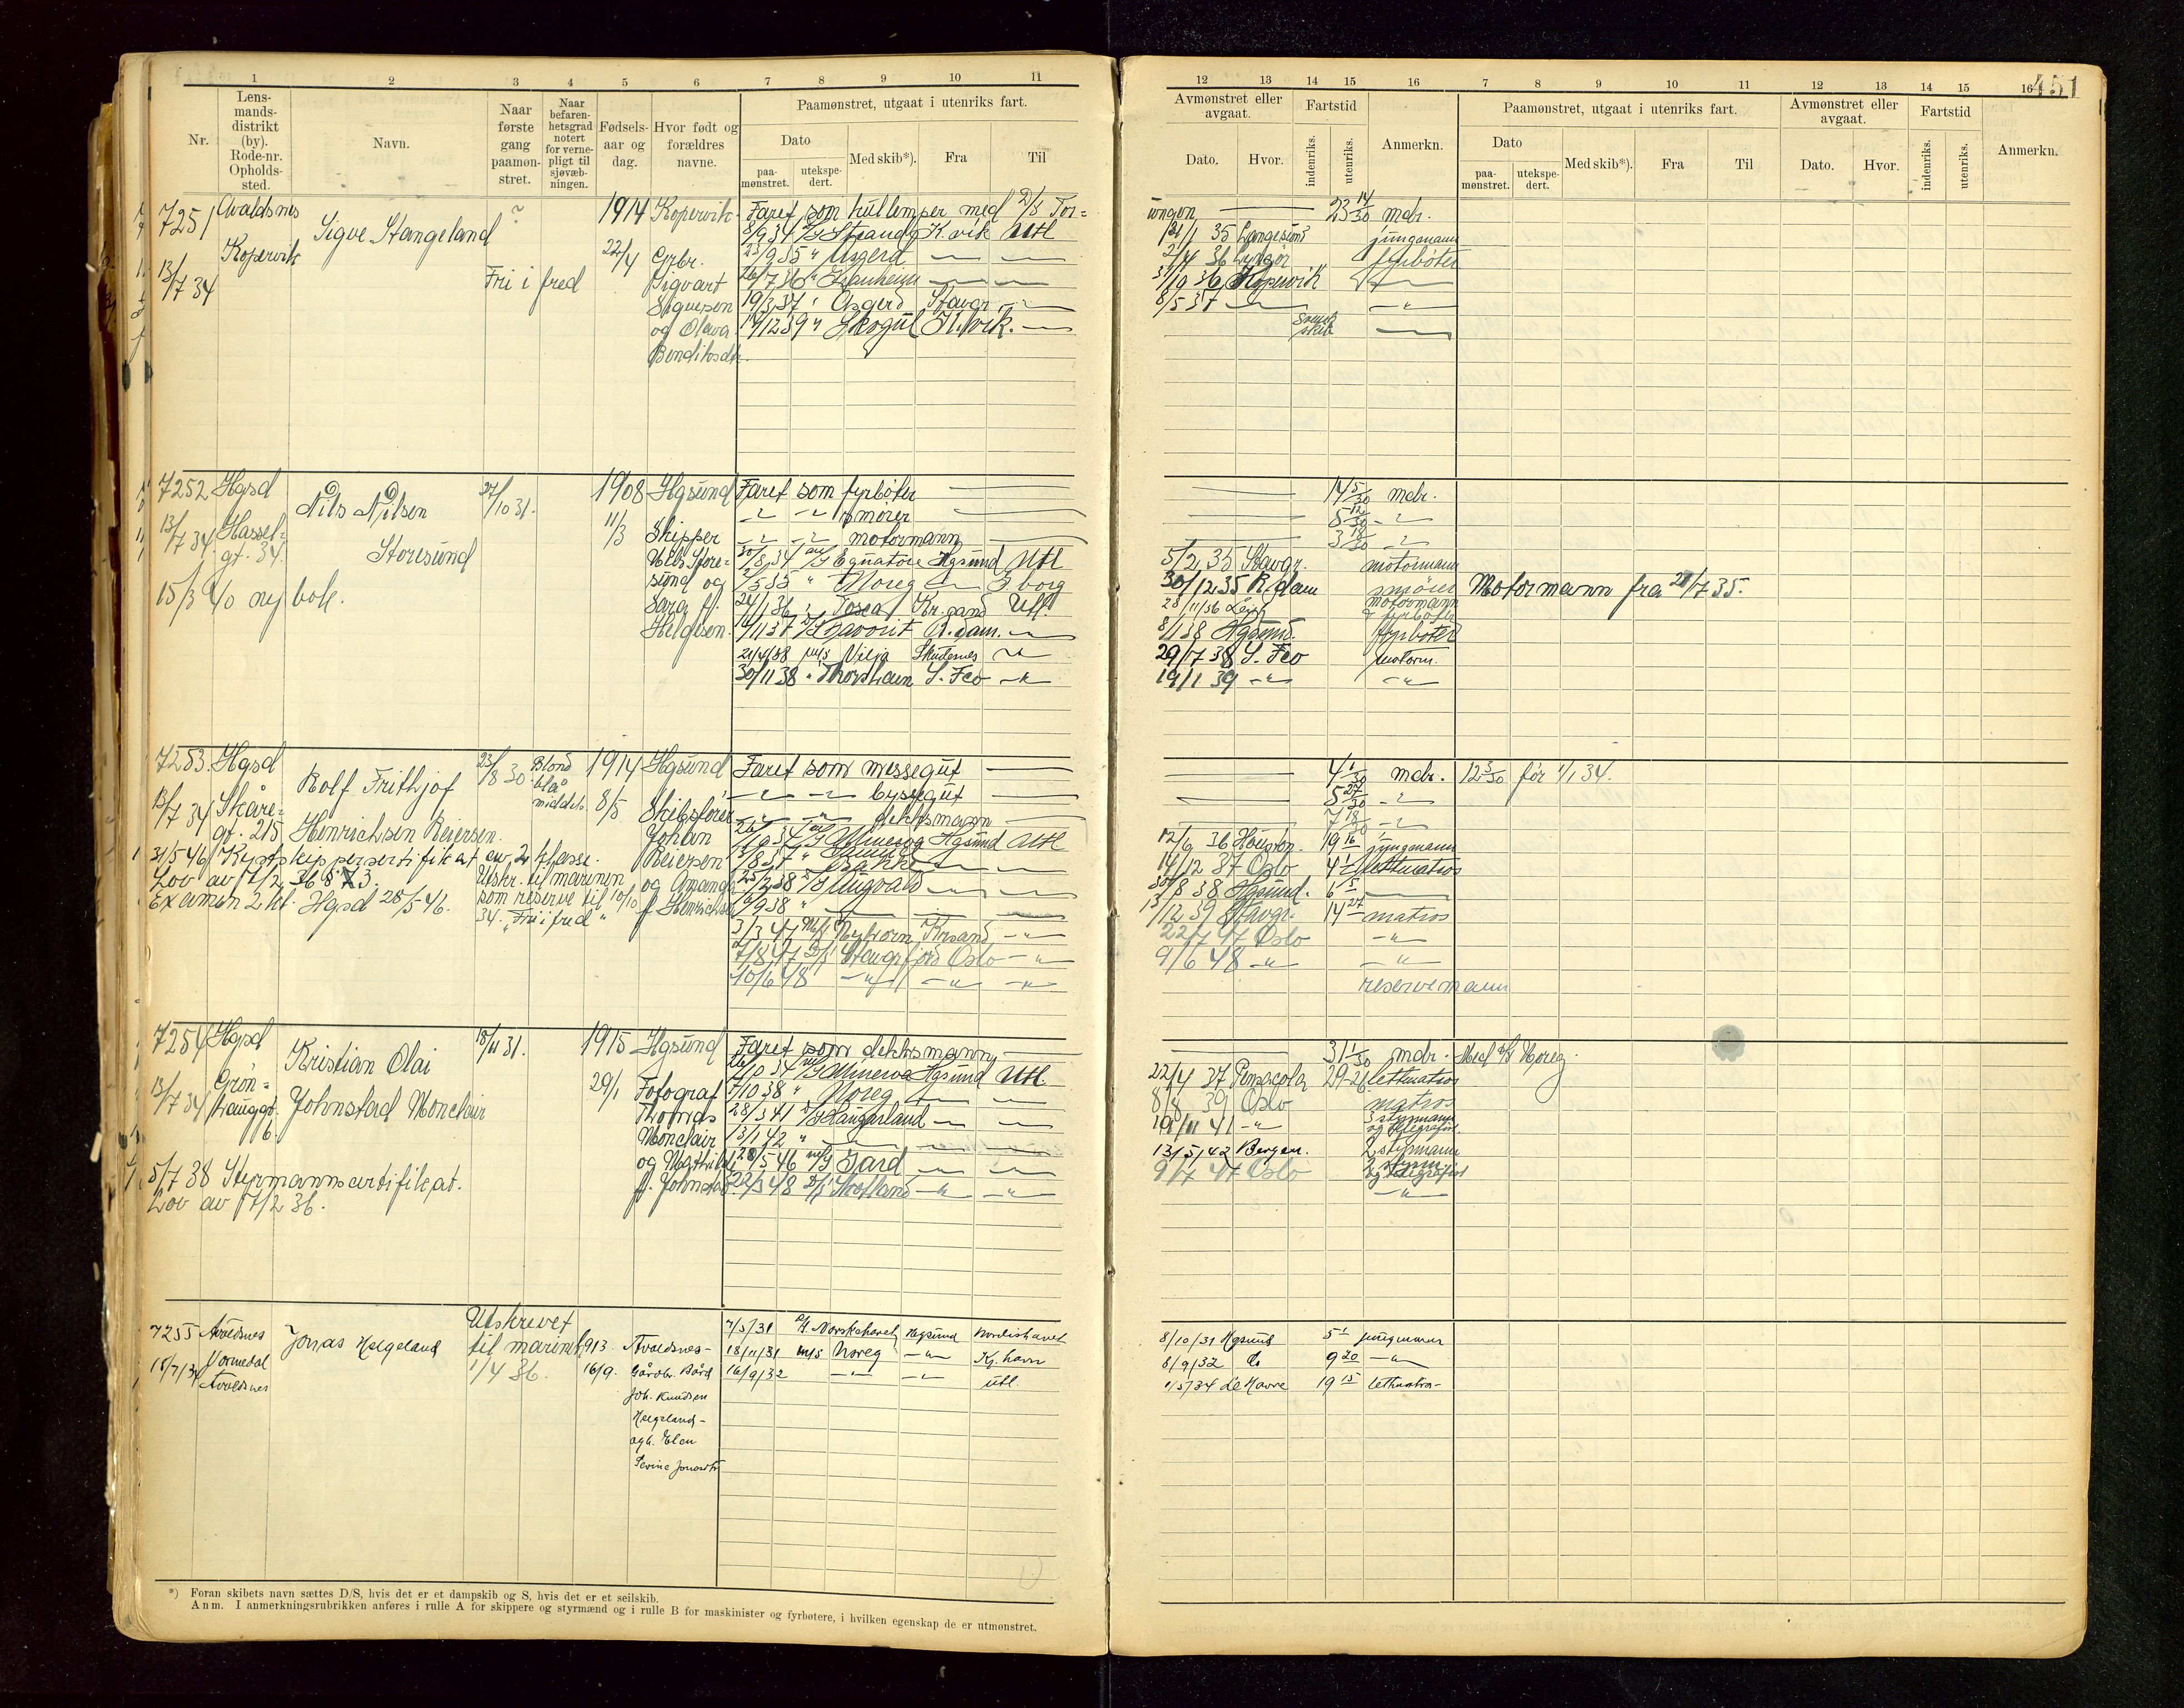 451
1 2 3 4 5 6 7 8 9 10 11
12 13 14 15 16 7 8 9 10 11 12 13 14 15 16
Nr.
Lens-
mands-
distrikt
(by).
Rode-nr.
Opholds-
sted.
Navn.
Naar
første
gang
paamøn-
stret.
Naar
befaren-
hetsgrad
notert
for verne-
pligt til
sjøvæb-
ningen.
Fødsels-
aar og
dag.
Hvor født og
forældres
navne.
Paamønstret, utgaat i utenriks fart.
Dato
paa-
mønstret.
utekspe-
dert.
Med skib*).
Fra
Til
Avmønstret eller
avgaat.
Dato.
Hvor.
Fartstid
indenriks.
utenriks.
Anmerkn.
Paamønstret, utgaat i utenriks fart.
Dato
paa-
mønstret.
utekspe-
dert.
Med skib*).
Fra
Til
Avmønstret eller
avgaat.
Dato.
Hvor.
Fartstid
indenriks.
utenriks.
Anmerkn.
7251 Avaldsnes
Kopervik
13/7 34
Sigve Stangeland
?
Fri i fred
1914
22/4
Kopervik
Grbr.
Sigvart
Sigvesen
og Olava
Bendiksdtr.
Faret som kullemper med D/S Tor=
8/9 34 Strand K.vik Utl
23/9 35 " Asgerd — —
26/7 36 " — —
19/3 37 " Asgerd Stavgr. —
14/12 39 " Skogul H.vik. —
ungen — 23 14/30 mdr.
21/1 35 Langesund jungmann
2/4 36 Lyngør fyrbøter
31/10 36 Kopervik —
8/5 37 — — " —
Svensk
skib —
7252 Hgsd
13/7 34. Hassel=
gt. 34.
15/3 40 ny bok.
Nils Nilsen
Storesund
27/10 31.
1908
11/3
Hgsund
Skipper
Nils Store=
sund og
Sara f.
Helgesen.
Faret som fyrbøter —
— " — — " — smører —
— " — — " — motormann —
30/8 34 m/S Equatore Hgsund Utl
2/5 35 " Noreg — S borg
24/1 36 " Tosca Kr.sand Utl.
14/1 37 D/S Favorit R.dam. —
21/4/38 m/s Vilja Skudesnes — " —
30/11 38 " Thorshavn S. Fco — " —
— 14 5/30 mdr.
— 5 12/30 — " —
— 3 18/30 — " —
5/2 35 Stavgr. motormann
30/12 35 R.dam smører Motormann fra 21/7 35.
28/11/36 motormann
& fyrbøter
8/1 38 Hgsund. fyrbøter
29/7 38 S. Fco motorm.
19/1 39 — " — — " —
7253. Hgsd
13/7 34 Skåre=
gt. 215
Rolf Frithjof
Henrichsen Reiersen.
23/8 30
Blond
blå
middels
1914
8/5
Hgsund
Skibsfører
Johan
Reiersen
og Amanda
f. Henrichsen
31/5 46 Kystskippersertifikat av 2 klasse.
Lov av 7/2 36 § 73.
Examen 2 kl. Hgsd 28/5 46.
Utskr. til marinen
som reserve til 10/10
34. "Fri i fred"
Faret som messegut —
— " — — " — byssegut —
— " — — " — dekksmann —
26/9 34 m/S Minerva Hgsund Utl
3/8 37 " — —
25/2 38 D/S Augvald — —
16/9 38 " — — —
3/3 47 M/S Nyhorn Krsand — " —
7/8 47 D/S Stavgrfjord Oslo — " —
10/6 48 — " — — " — — " —
— 4 1/30 mdr. 12 3/30 før 1/1 34.
— 5 27/30 — " —
— 7 18/30 — " —
12/6 36 Houston. 19 16 jungmann
14/12 37 Oslo 4 1 lettmatros
30/8 38 Hgsund. 6 5 —
13/12 39 Stavgr. 14 27 matros
22/7 47 Oslo — " —
9/6 48 — " — — " —
reservemann
7254 Hgsd
13/7 34 Grøn=
hauggt.
16.
Kristian Olai
Johnstad Monclair
18/11 31.
1915
29/1
Hgsund
Fotograf
Thomas
Monclair
og Mathilde
f. Johnstad.
5/7 38 Styrmannscertifikat.
Lov av 7/2 36.
Faret som dekksmann —
26/10 34 m/S Minerva Hgsund Utl.
7/10 38 " Noreg — —
28/3 41 D/S Haugarland — —
13/1 42 " — — —
28/5 46 m/S Gard — —
22/3 48 D/S — " — — " —
31 1/30 mdr. Med m/S Noreg.
22/4 37 Pensacola 29-26 lettmatros
8/8 39 Oslo matros
19/11 41 — " — 3 styrmann
og telegrafist.
13/5/42 Bergen. 2 styrmann
9/7 47 Oslo 2 styrm.
og telegrafist
— " —
7255 Avaldsnes
18/7/34 Vormedal
Avaldsnes
Jonas Helgeland
Utskrevet
til marinen
1/4 36.
1913.
16/9.
Avaldsnes-
Gårdbr. Bård
Joh. Knudsen
Helgeland-
og h. Elen
Serine Jonasdtr
7/5/31 S/S. Norskehavet Hgsund Nordishavet
18/11/31 m/s Noreg — " — Kj.havn
16/9/32 — " — — " — Utl.
8/10/31 Hgsund 5 1 jungmann
8/9/32 Do 9 20 — " —
1/5/34 Le Havre 19 15 lettmatros-
*) Foran skibets navn sættes D/S, hvis det er et dampskib og S, hvis det er et seilskib.
Anm. I anmerkningsrubrikken anføres i rulle A for skippere og styrmænd og i rulle B for maskinister og fyrbøtere, i hvilken egenskap de er utmønstret.